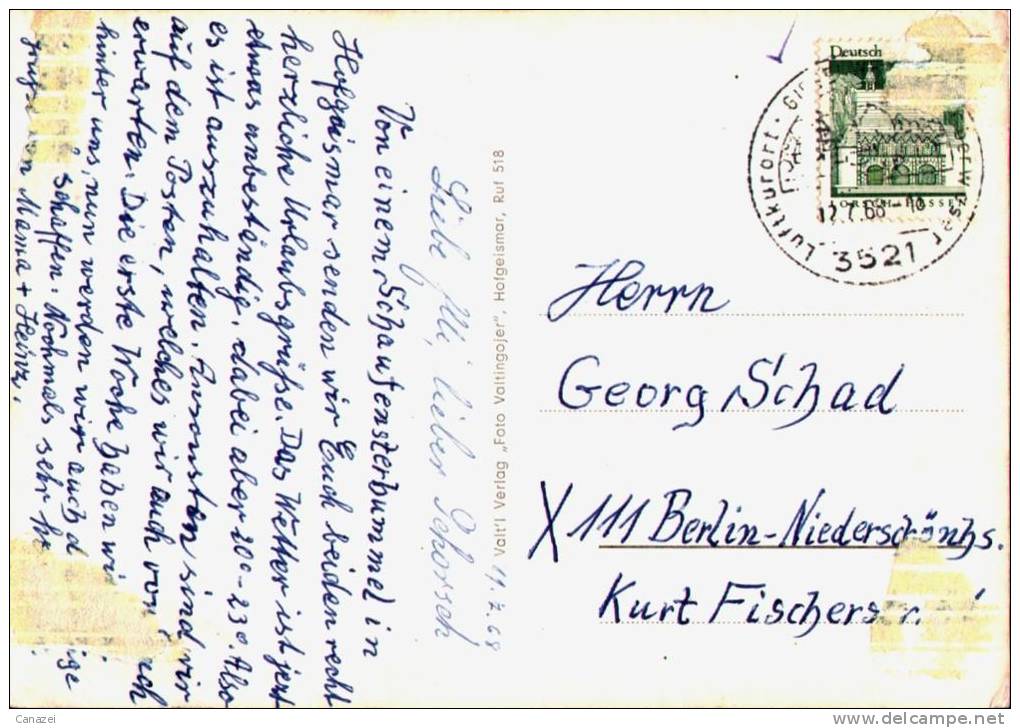 Liebe Illi, lieber Schorsch
11.7.68
Von einem Schaufensterbummel in
Hofgeismar senden wir Euch beiden recht
herzliche Urlaubsgrüße. Das Wetter ist jetzt
etwas unbeständig, dabei aber 20-23°. Also
es ist auszuhalten. Ansonsten sind wir
auf dem Posten, welches wir auch von
erwarten. Die erste Woche haben wir
hinter uns, nun werden wir auch d
schaffen. Nochmals sehr
von Mama + Heinz.
Valt'l Verlag „Foto Valtingojer", Hofgeismar, Ruf 518
Deutsch
Luftkurort
12.7.68 - 18
3521
Herrn
Georg Schad
X 111 Berlin-Niederschönhs.
Kurt Fischerstr.
Canazei
www.delcampe.net